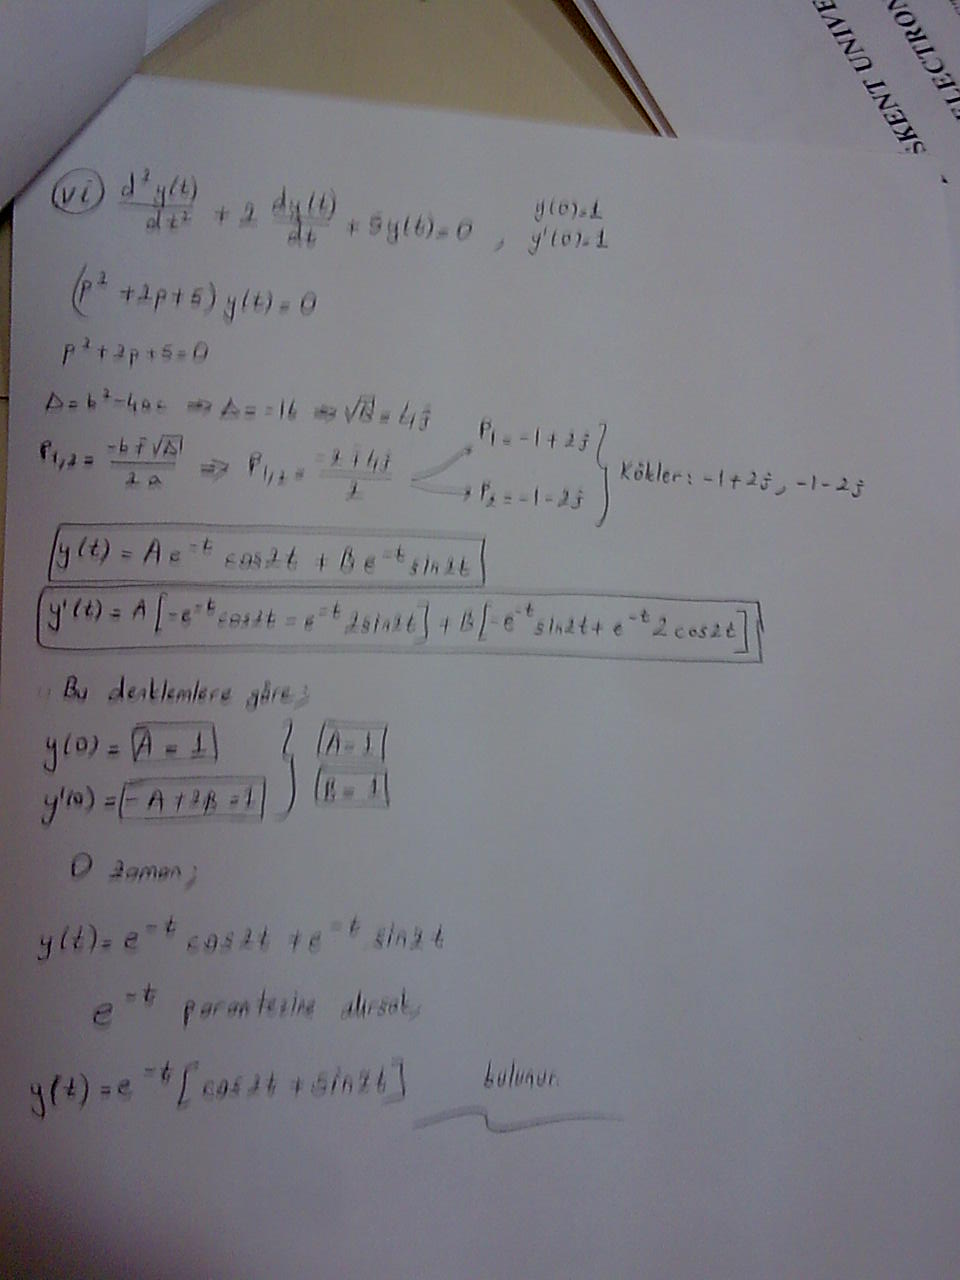 ŞKENT UNIVE
ELECTRON
(vi) d²y(t)/dt² + 2 dy(t)/dt + 5y(t)=0 , y(0)=1
y'(0)=1
(p² +2p+5) y(t)=0
p²+2p+5=0
Δ=b²-4ac ⇒ Δ=-16 ⇒ √Δ=4j
P₁,₂ = (-b ∓ √Δ)/2a ⇒ P₁,₂ = (-2 ∓ 4j)/2
P₁=-1+2j
P₂=-1-2j
} Kökler: -1+2j, -1-2j
y(t) = A e^-t cos2t + B e^-t sin2t
y'(t) = A [-e^-t cos2t - e^-t 2sin2t] + B [-e^-t sin2t + e^-t 2 cos2t]
Bu denklemlere göre;
y(0) = A = 1 } A=1
y'(0) = -A+2B=1 } B=1
O zaman;
y(t)= e^-t cos2t + e^-t sin2t
e^-t parantezine alırsak,
y(t)= e^-t [cos2t + sin2t] bulunur.